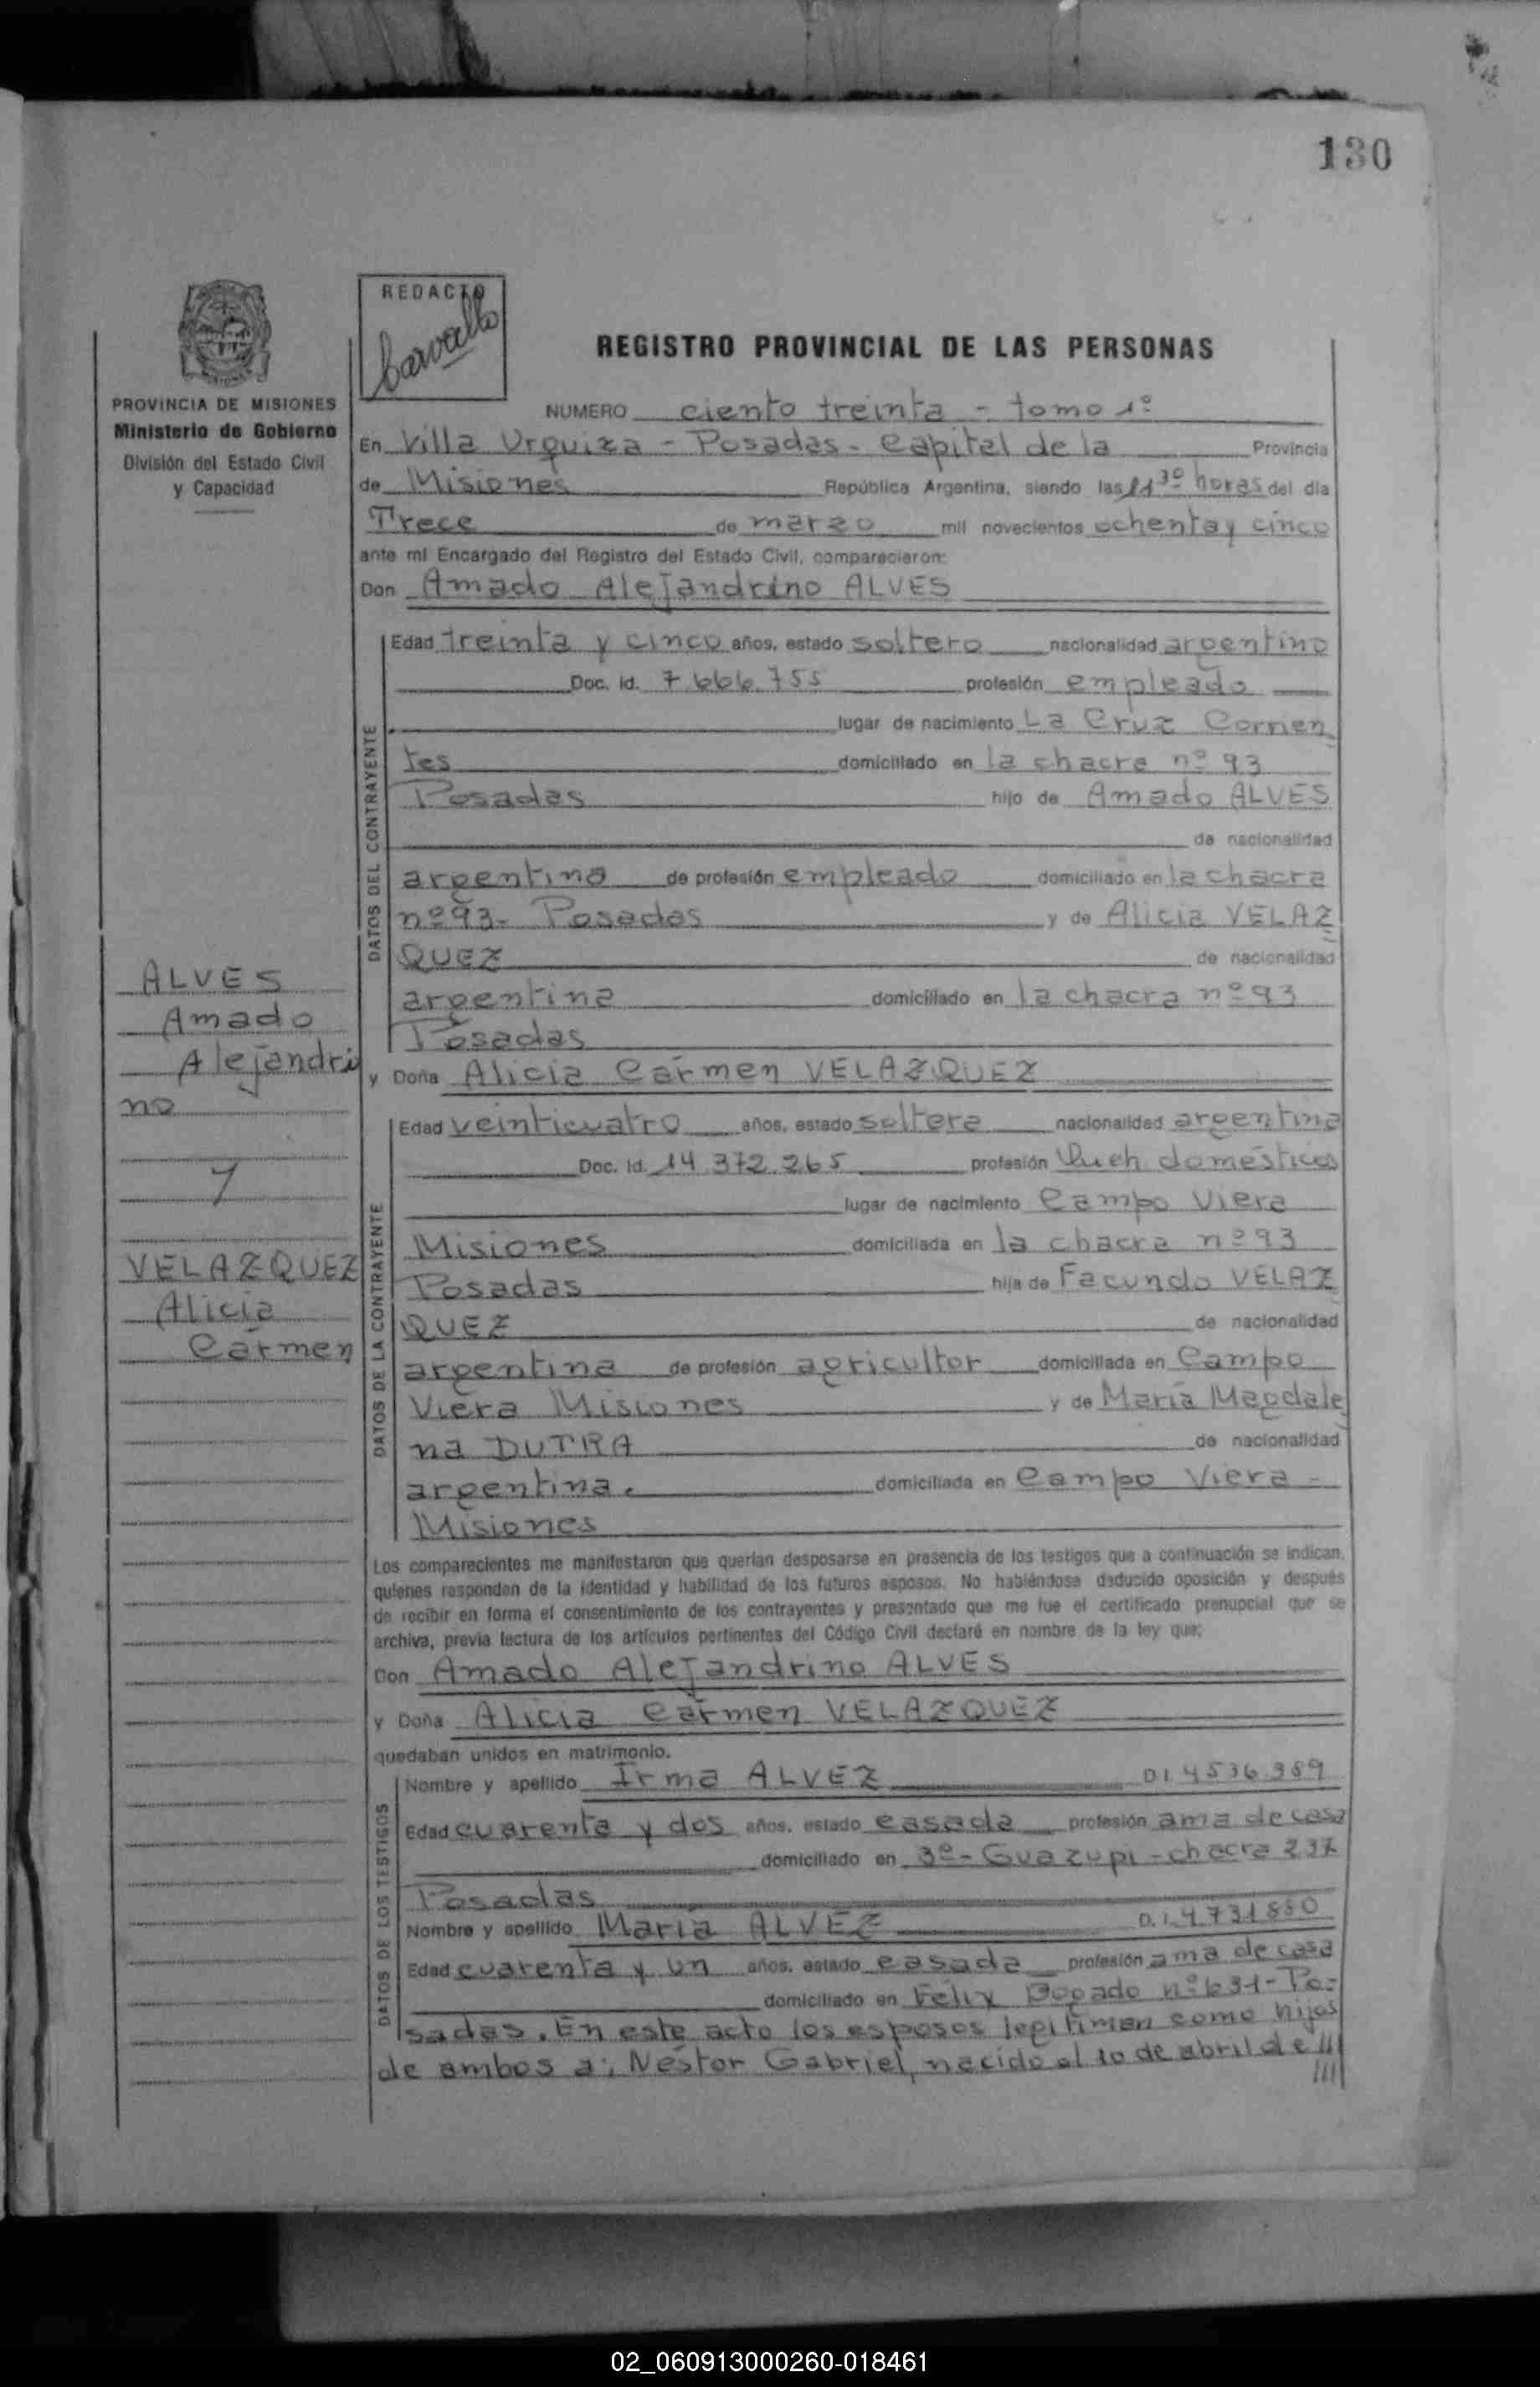 130
REDACTO
Carvallo
REGISTRO PROVINCIAL DE LAS PERSONAS
PROVINCIA DE MISIONES
Ministerio de Gobierno
División del Estado Civil
y Capacidad
NUMERO ciento treinta - tomo 1º
En Villa Urquiza - Posadas - Capital de la Provincia
de Misiones República Argentina, siendo las 11 30 horas del día
Trece de marzo mil novecientos ochenta y cinco
ante mí Encargado del Registro del Estado Civil, comparecieron:
Don Amado Alejandrino ALVES
DATOS DEL CONTRAYENTE
Edad treinta y cinco años, estado soltero nacionalidad argentino
Doc. Id. 7.666.755 profesión empleado
lugar de nacimiento La Cruz Corrien
tes domiciliado en la chacra nº 93
Posadas hijo de Amado ALVES
de nacionalidad
argentino de profesión empleado domiciliado en la chacra
nº 93- Posadas y de Alicia VELAZ
QUEZ de nacionalidad
argentina domiciliado en la chacra nº 93
Posadas
y Doña Alicia Cármen VELAZQUEZ
ALVES
Amado
Alejandri
no
y
VELAZQUEZ
Alicia
Cármen
DATOS DE LA CONTRAYENTE
Edad veinticuatro años, estado soltera nacionalidad argentina
Doc. Id. 14.372.265 profesión Queh domésticos
lugar de nacimiento Campo Viera
Misiones domiciliada en la chacra nº 93
Posadas hija de Facundo VELAZ
QUEZ de nacionalidad
argentina de profesión agricultor domiciliada en Campo
Viera Misiones y de María Magdale
na DUTRA de nacionalidad
argentina. domiciliada en Campo Viera -
Misiones
Los comparecientes me manifestaron que querían desposarse en presencia de los testigos que a continuación se indican,
quienes responden de la identidad y habilidad de los futuros esposos. No habiéndose deducido oposición y después
de recibir en forma el consentimiento de los contrayentes y presentado que me fue el certificado prenupcial que se
archiva, previa lectura de los artículos pertinentes del Código Civil declaré en nombre de la ley que:
Don Amado Alejandrino ALVES
y Doña Alicia Cármen VELAZQUEZ
quedaban unidos en matrimonio.
DATOS DE LOS TESTIGOS
Nombre y apellido Irma ALVEZ D.I. 4536389
Edad cuarenta y dos años, estado casada profesión ama de casa
domiciliado en 3º - Guazupi - chacra 237
Posadas
Nombre y apellido María ALVEZ D.I. 4731880
Edad cuarenta y un años, estado casada profesión ama de casa
domiciliado en Félix Bogado nº 631 - Po-
sadas. En este acto los esposos legitiman como hijos
de ambos a; Néstor Gabriel, nacido el 10 de abril de ///
////
02_060913000260-018461